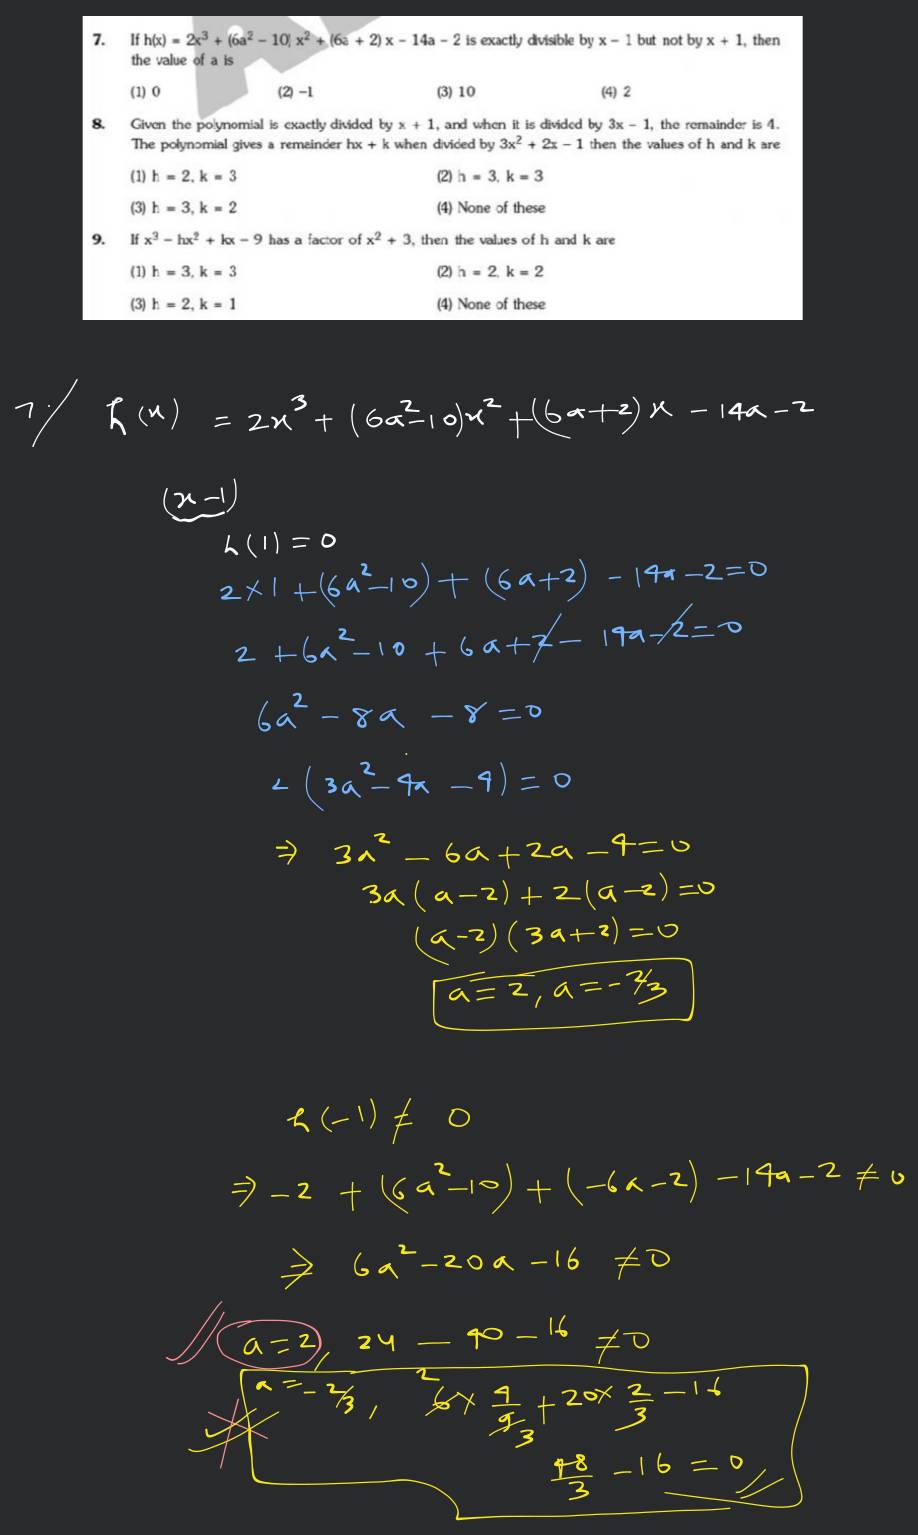 7. If h(x) = 2x³ + (6a² – 10) x² + (6a + 2) x – 14a – 2 is exactly divisible by x – 1 but not by x + 1, then
the value of a is
(1) 0 (2) –1 (3) 10 (4) 2
8. Given the polynomial is exactly divided by x + 1, and when it is divided by 3x – 1, the remainder is 4.
The polynomial gives a remainder hx + k when divided by 3x² + 2x – 1 then the values of h and k are
(1) h = 2, k = 3 (2) h = 3, k = 3
(3) h = 3, k = 2 (4) None of these
9. If x³ – hx² + kx – 9 has a factor of x² + 3, then the values of h and k are
(1) h = 3, k = 3 (2) h = 2, k = 2
(3) h = 2, k = 1 (4) None of these
7. h(x) = 2x³ + (6a²-10)x² + (6a+2)x - 14a - 2
(x-1)
h(1) = 0
2×1 + (6a²-10) + (6a+2) - 14a - 2 = 0
2 + 6a² - 10 + 6a + 2 - 14a - 2 = 0
6a² - 8a - 8 = 0
2(3a² - 4a - 4) = 0
⇒ 3a² - 6a + 2a - 4 = 0
3a(a-2) + 2(a-2) = 0
(a-2)(3a+2) = 0
a = 2, a = -2/3
h(-1) ≠ 0
⇒ -2 + (6a²-10) + (-6a-2) - 14a - 2 ≠ 0
⇒ 6a² - 20a - 16 ≠ 0
a = 2, 24 - 40 - 16 ≠ 0
a = -2/3, 6 2 × 4/9 3 + 20 × 2/3 - 16
48/3 - 16 = 0